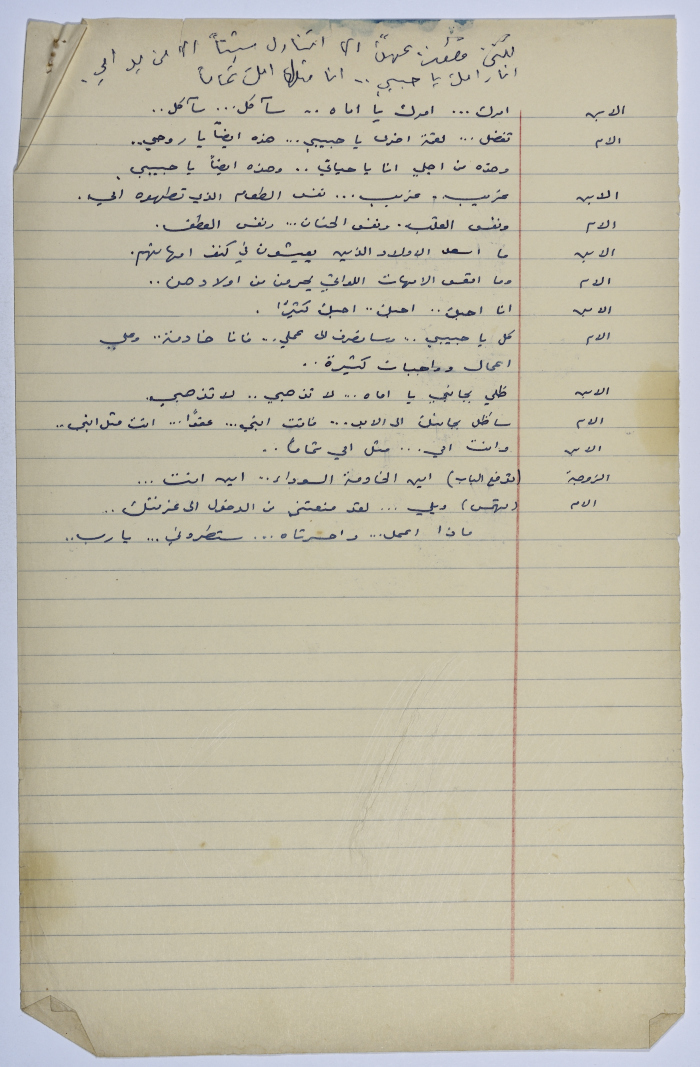 لكني قطعت عهداً الا اتناول شيئاً الا من يد امي.
انا امك يا حبيبي .. انا مثل امك تماماً
الابن امك ... امك يا اماه .. سآكل ... سآكل ..
الام تفضل ... لقمة اخرى يا حبيبي ... هذه ايضاً يا روحي ..
وهذه من اجلي انا يا حياتي .. وهذه ايضاً يا حبيبي
الابن عجيب . عجيب ... نفس الطعام الذي تطهوه امي .
الام ونفس القلب . ونفس الحنان ... ونفس العطف .
الابن ما اسعد الاولاد الذين يعيشون في كنف امهاتهم .
الام وما اتعس الامهات اللواتي يحرمن من اولادهن ..
الابن انا احبك .. احبك .. احبك كثيراً .
الام كل يا حبيبي .. وسأنصرف الى عملي .. فانا خادمة .. وعلي
اعمال وواجبات كثيرة ..
الابن ظلي بجانبي يا اماه ... لا تذهبي .. لا تذهبي .
الام سأظل بجانبك الى الابد ... فانت ابني ... عفواً ... انت مثل ابني ..
الابن وانت امي ... مثل امي تماماً ..
الزوجة (تدفع الباب) اين الخادمة السوداء .. اين انت ...
الام (تهمس) ويلي ... لقد منعتني من الدخول الى غرفتك ..
ماذا اعمل ... واحسرتاه ... ستطردني ... يا رب ..